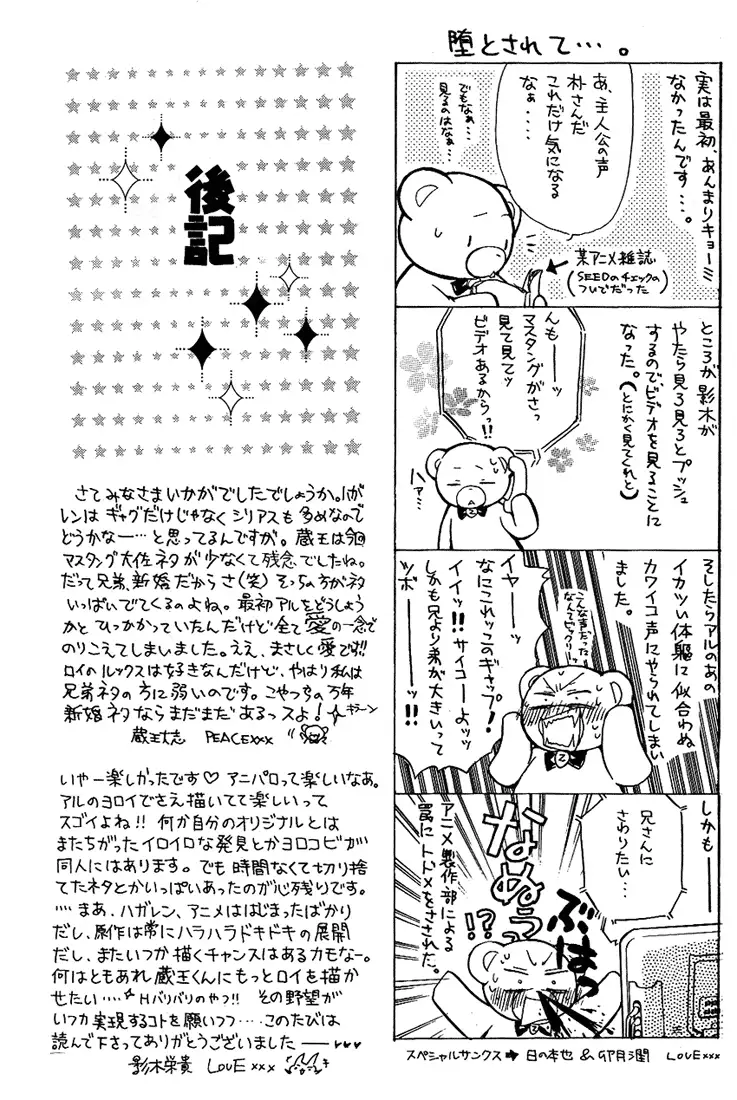 堕とされて…。
実は最初、あんまりキョーミ
なかったんです…。
あ、主人公の声
朴さんだ
これだけ気になる
なぁ…‥
でもなぁ…
見るのはなぁ…
某アニメ雑誌
(SEEDのチェックの
ついでだった)
ところが影木が
やたら見ろ見ろとプッシュ
するので、ビデオを見ることに
なった。(とにかく見てくれと)
んもーッ
マスタングがさっ
見て見てッ
ビデオあるからっ!!
ハァ…
そしたらアルのあの
イカツい体躯に似合わぬ
カワイコ声にやられてしまい
ました。
こんな声だった
なんてビックリ
イヤーッ
なにこれッこのギャップ!
イイッ!!サイコーよッッ
しかも兄より弟が大きいって
ツボーッ!!
しかもー
兄さんに
さわりたい…
アニメ製作部による
罠にトドメをさされた。
なぬうっ
!?
ぶはっ
スペシャルサンクス➡日の本也 & 卯月潤 LOVExxx
後記
さてみなさまいかがでしたでしょうか。ハガ
レンはギャグだけじゃなくシリアスも多めなので
どうかなー…と思ってるんですが。蔵王は今回
マスタング大佐ネタが少なくて残念でしたね。
だって兄弟、新婚だからさ(笑)そっちの方がネタ
いっぱいでてくるのよね。最初アルをどうしよう
かとひっかかっていたんだけど全て愛の一念で
のりこえてしまいました。ええ、まさしく愛で!!
ロイのルックスは好きなんだけど、やはり私は
兄弟ネタの方に弱いのです。こやつらの万年
新婚ネタならまだまだあるっスよ!キラーン
蔵王大志 PEACExxx
いやー楽しかったです♡アニパロって楽しいなあ。
アルのヨロイでさえ描いてて楽しいって
スゴイよね!!何か自分のオリジナルとは
またちがったイロイロな発見とかヨロコビが
同人にはあります。でも時間なくて切り捨
てたネタとかいっぱいあったのが心残りです。
‥‥まあ、ハガレン、アニメははじまったばかり
だし、原作は常にハラハラドキドキの展開
だし、またいつか描くチャンスはあるカモなー。
何はともあれ蔵王くんにもっとロイを描か
せたい‥‥Hバリバリのやつ!!その野望が
いつか実現するコトを願いつつ…このたびは
読んで下さってありがとうございました―♥♥♥
影木栄貴 LOVExxx